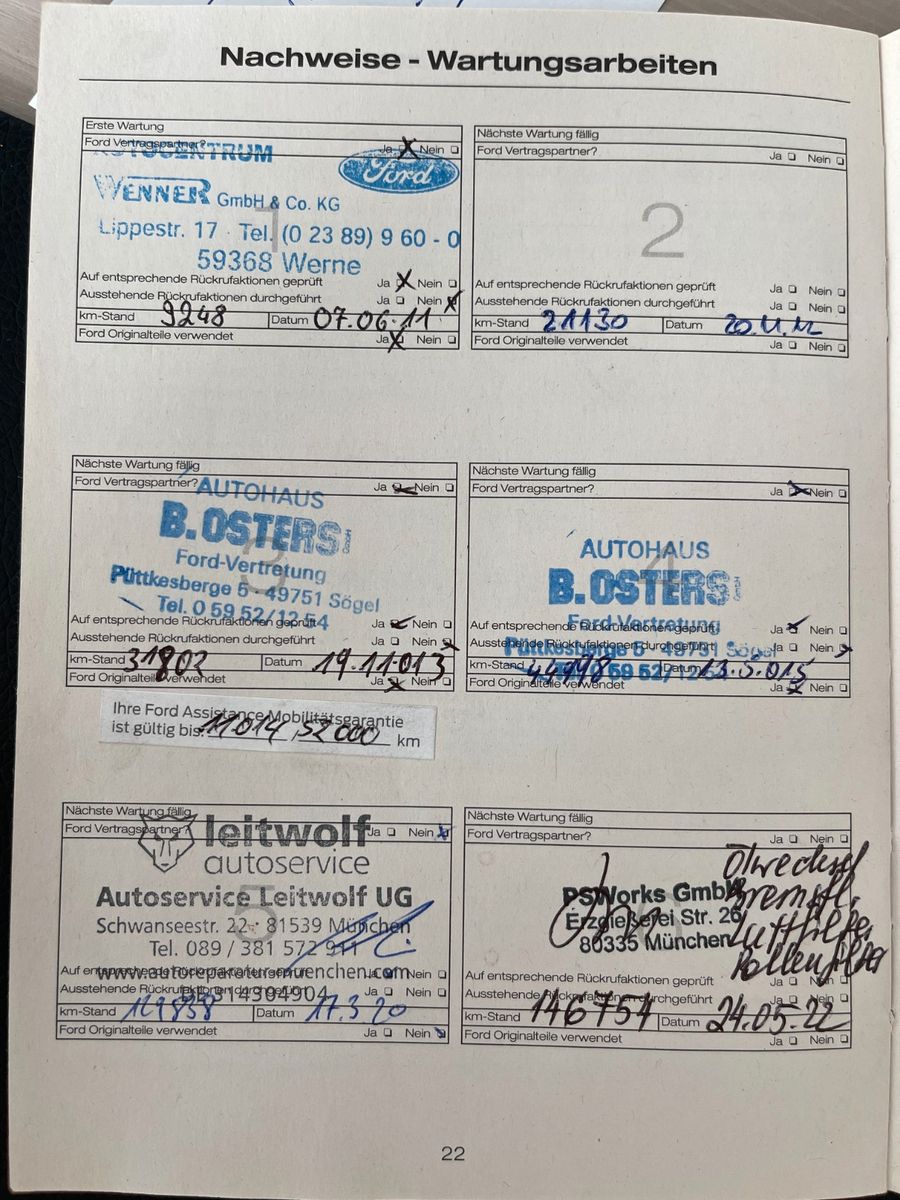 Nachweise - Wartungsarbeiten
Erste Wartung
Ford Vertragspartner? Ja Nein
AUTOCENTRUM
Ford
WENNER GmbH & Co. KG
1
Lippestr. 17 · Tel. (0 23 89) 9 60 - 0
59368 Werne
Auf entsprechende Rückrufaktionen geprüft Ja Nein
Ausstehende Rückrufaktionen durchgeführt Ja Nein
km-Stand 9248 Datum 07.06.11
Ford Originalteile verwendet Ja Nein
Nächste Wartung fällig
Ford Vertragspartner? Ja Nein
2
Auf entsprechende Rückrufaktionen geprüft Ja Nein
Ausstehende Rückrufaktionen durchgeführt Ja Nein
km-Stand 21130 Datum 20.11.12
Ford Originalteile verwendet Ja Nein
Nächste Wartung fällig
Ford Vertragspartner? Ja Nein
AUTOHAUS
B. OSTERS
3
Ford-Vertretung
Püttkesberge 5 - 49751 Sögel
Tel. 0 59 52/12 54
Auf entsprechende Rückrufaktionen geprüft Ja Nein
Ausstehende Rückrufaktionen durchgeführt Ja Nein
km-Stand 31802 Datum 19.11.013
Ford Originalteile verwendet Ja Nein
Ihre Ford Assistance Mobilitätsgarantie
ist gültig bis: 11014, 52000 km
Nächste Wartung fällig
Ford Vertragspartner? Ja Nein
AUTOHAUS
B. OSTERS
4
Ford-Vertretung
Auf entsprechende Rückrufaktionen geprüft Ja Nein
Püttkesberge 5 - 49751 Sögel
Ausstehende Rückrufaktionen durchgeführt Ja Nein
59 52/12
km-Stand Datum 13.5.015
Ford Originalteile verwendet Ja Nein
Nächste Wartung fällig
Ford Vertragspartner? Ja Nein
leitwolf
autoservice
Autoservice Leitwolf UG
5
Schwanseestr. 22 - 81539 München
Tel. 089 / 381 572 911
Auf entsprechende Rückrufaktionen geprüft Ja Nein
www.autoreparaturen-muenchen.com
Ausstehende Rückrufaktionen durchgeführt Ja Nein
14304904
km-Stand 129838 Datum 17.3.20
Ford Originalteile verwendet Ja Nein
Nächste Wartung fällig
Ford Vertragspartner? Ja Nein
Ölwechsel
Bremsfl.
Luftfilter
Pollenfilter
PSWorks GmbH
Erzgießerei Str. 26
80335 München
Auf entsprechende Rückrufaktionen geprüft Ja Nein
Ausstehende Rückrufaktionen durchgeführt Ja Nein
km-Stand 146754 Datum 24.05.22
Ford Originalteile verwendet Ja Nein
22